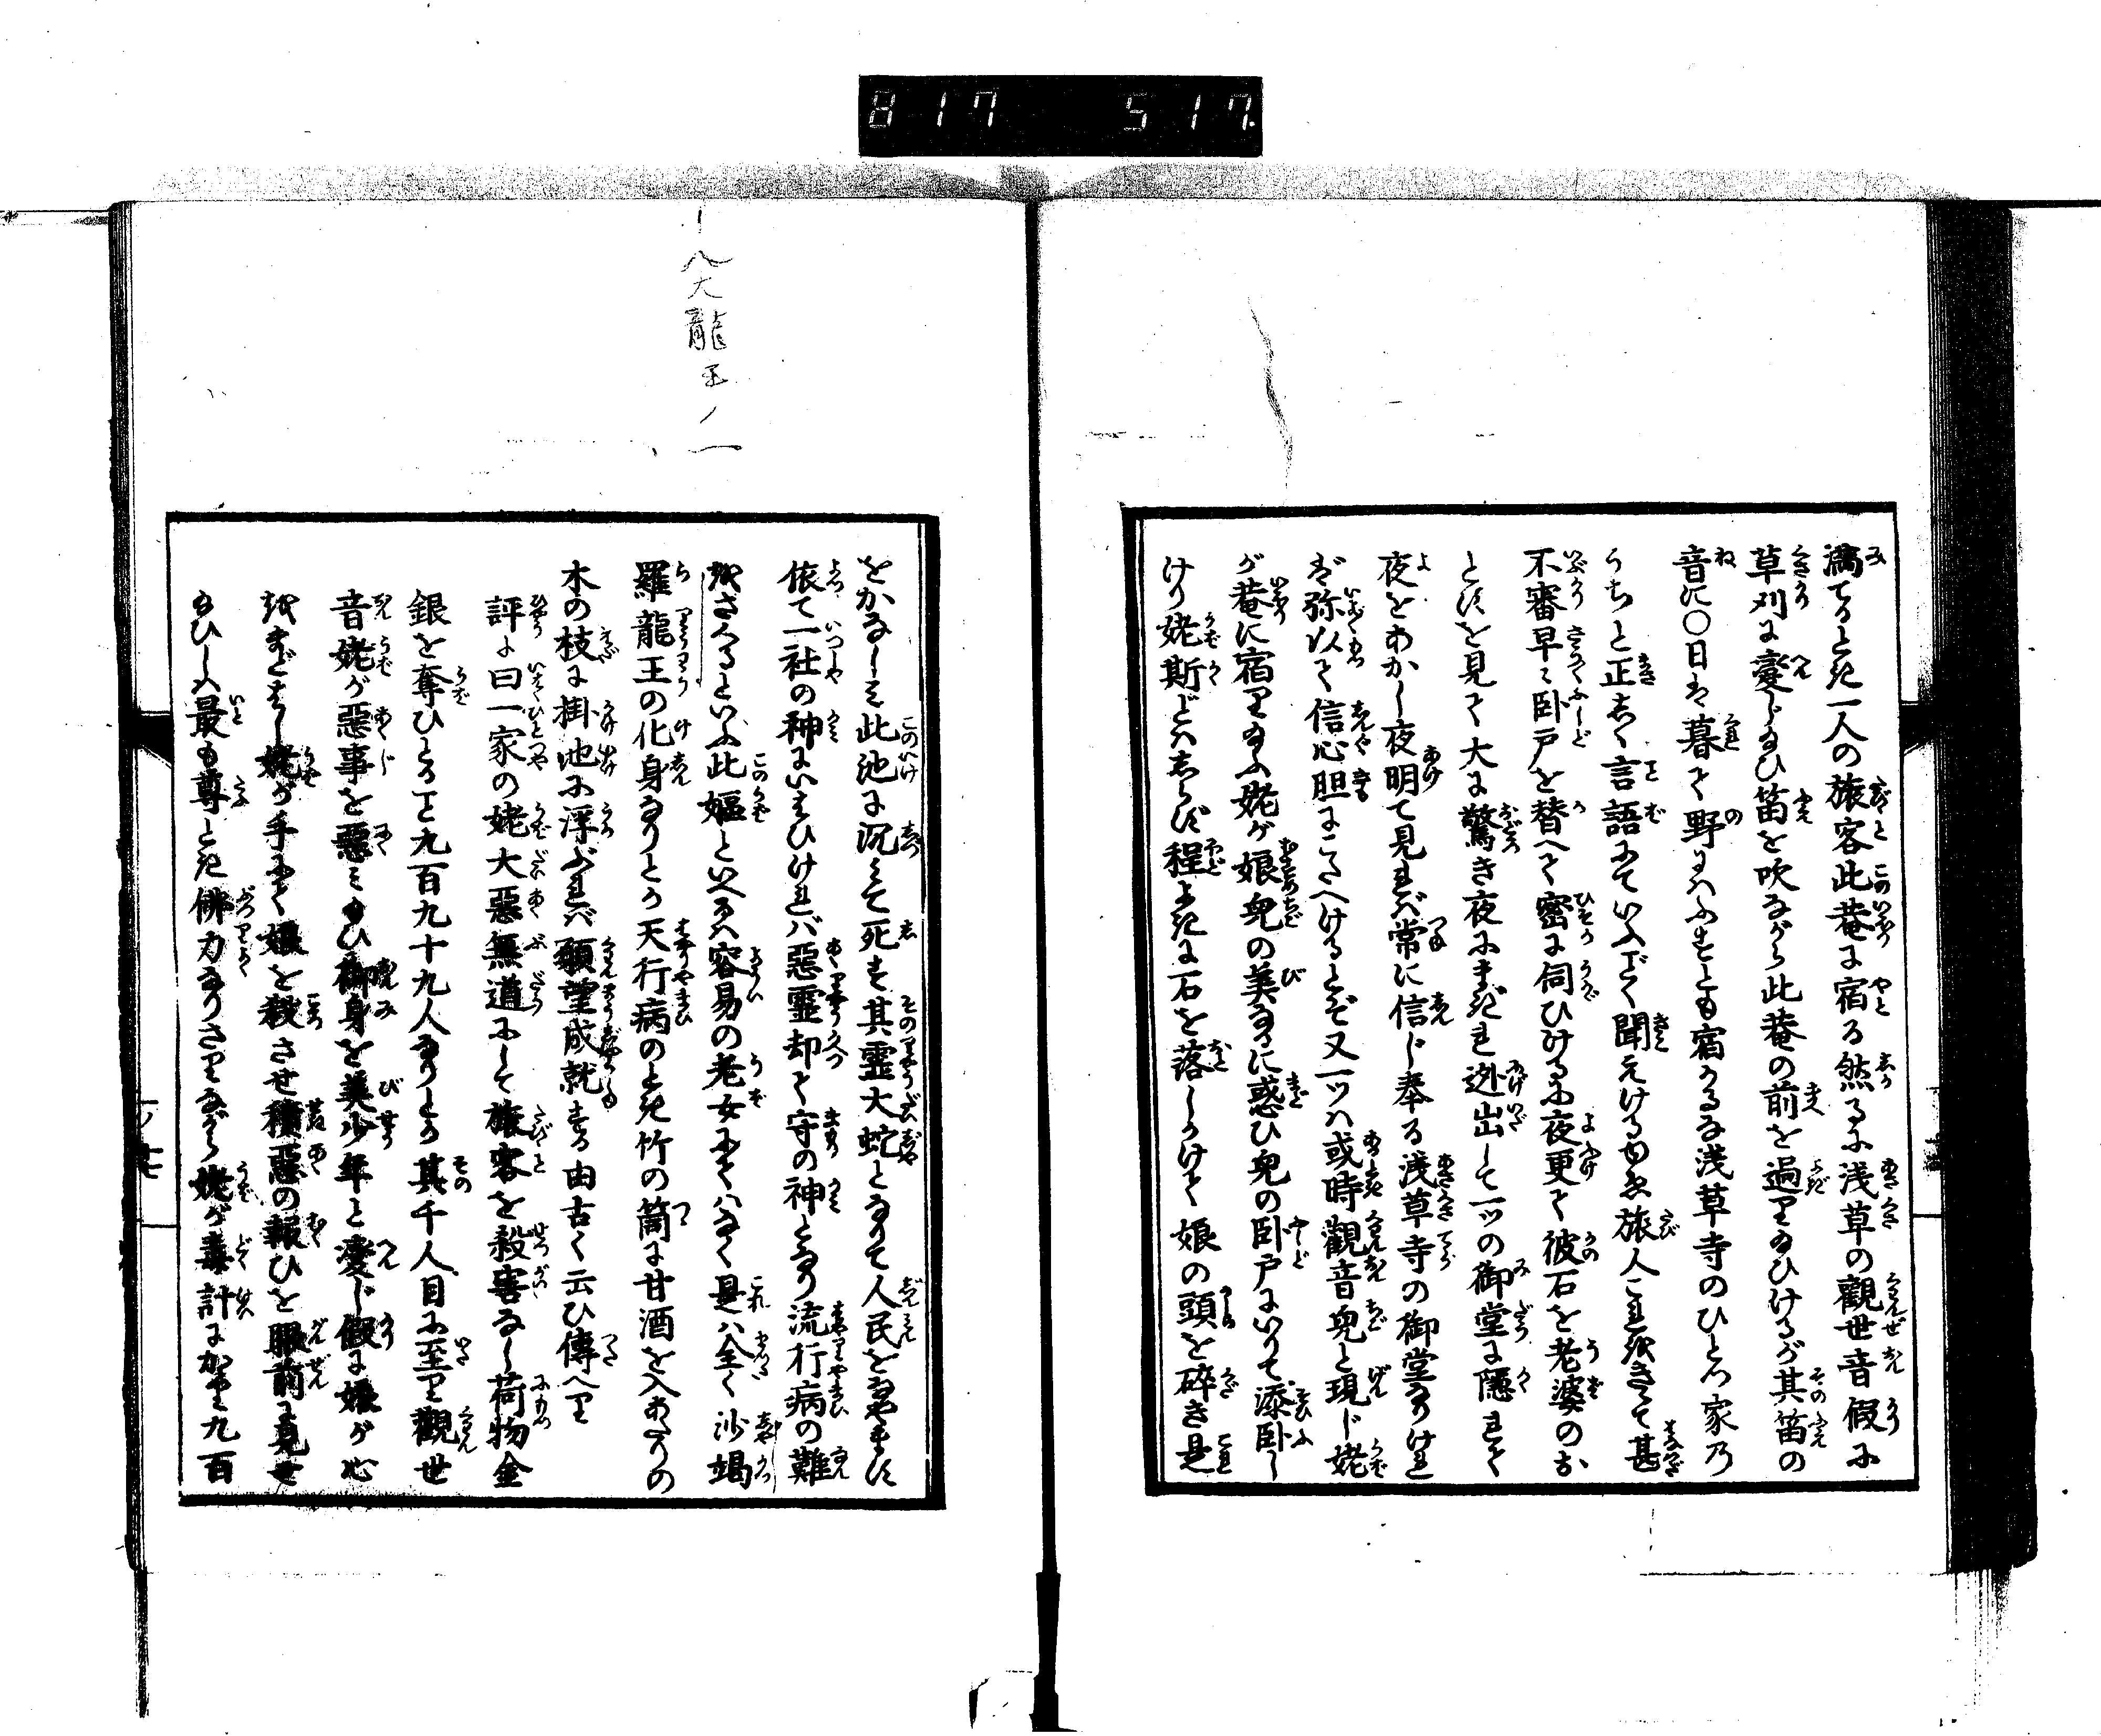 817 517
満てるとき一人の旅客此菴に宿る然るに浅草の觀世音假に
草刈に変じ給ひ笛を吹ながら此菴の前を過り給ひけるが其笛の
音に〇日は暮て野にはふすとも宿かるな浅草寺のひとつ家の
うちと正しく言語にていふごく聞えけるゆゑ旅人これをきゝて甚
不審早々卧戸を替へて密に伺ひけるに夜更て彼石を老婆のお
とすを見て大に驚き夜にまぎれ迯出して一ツの御堂に隠れて
夜をあかし夜明て見れば常に信じ奉る浅草寺の御堂なりけれ
ば弥以て信心胆にこたへけるとぞ又一ツハ或時觀音兒と現じ姥
が菴に宿り給ふ姥が娘兒の美なるに惑ひ兒の卧戸にいりて添卧し
けり姥斯とハしらず程よきに石を落しかけて娘の頭を碎き是
八大龍王ノ一
をかなしミ此池に沉ミて死す其靈大蛇となりて人民をなやます
依て一社の神にいはひけれバ惡靈却て守の神となり流行病の難
をさくるといふ此嫗といへるハ容易の老女にてハなく是ハ全く沙竭
羅龍王の化身なりとか天行病のとき竹の筒に甘酒を入あたりの
木の枝に掛池に浮ぶれバ願望成就する由古く云ひ傳へり
評に曰一家の姥大惡無道にして旅客を殺害なし荷物金
銀を奪ひとること九百九十九人なりとか其千人目に至り觀世
音姥が惡事を惡ミ給ひ御身を美少年と変じ假に娘が心
をまどはし姥が手にて娘を殺させ積惡の報ひを眼前に見せ
給ひしハ最も尊とき佛力なりさりながら姥が毒計にかゝり九百